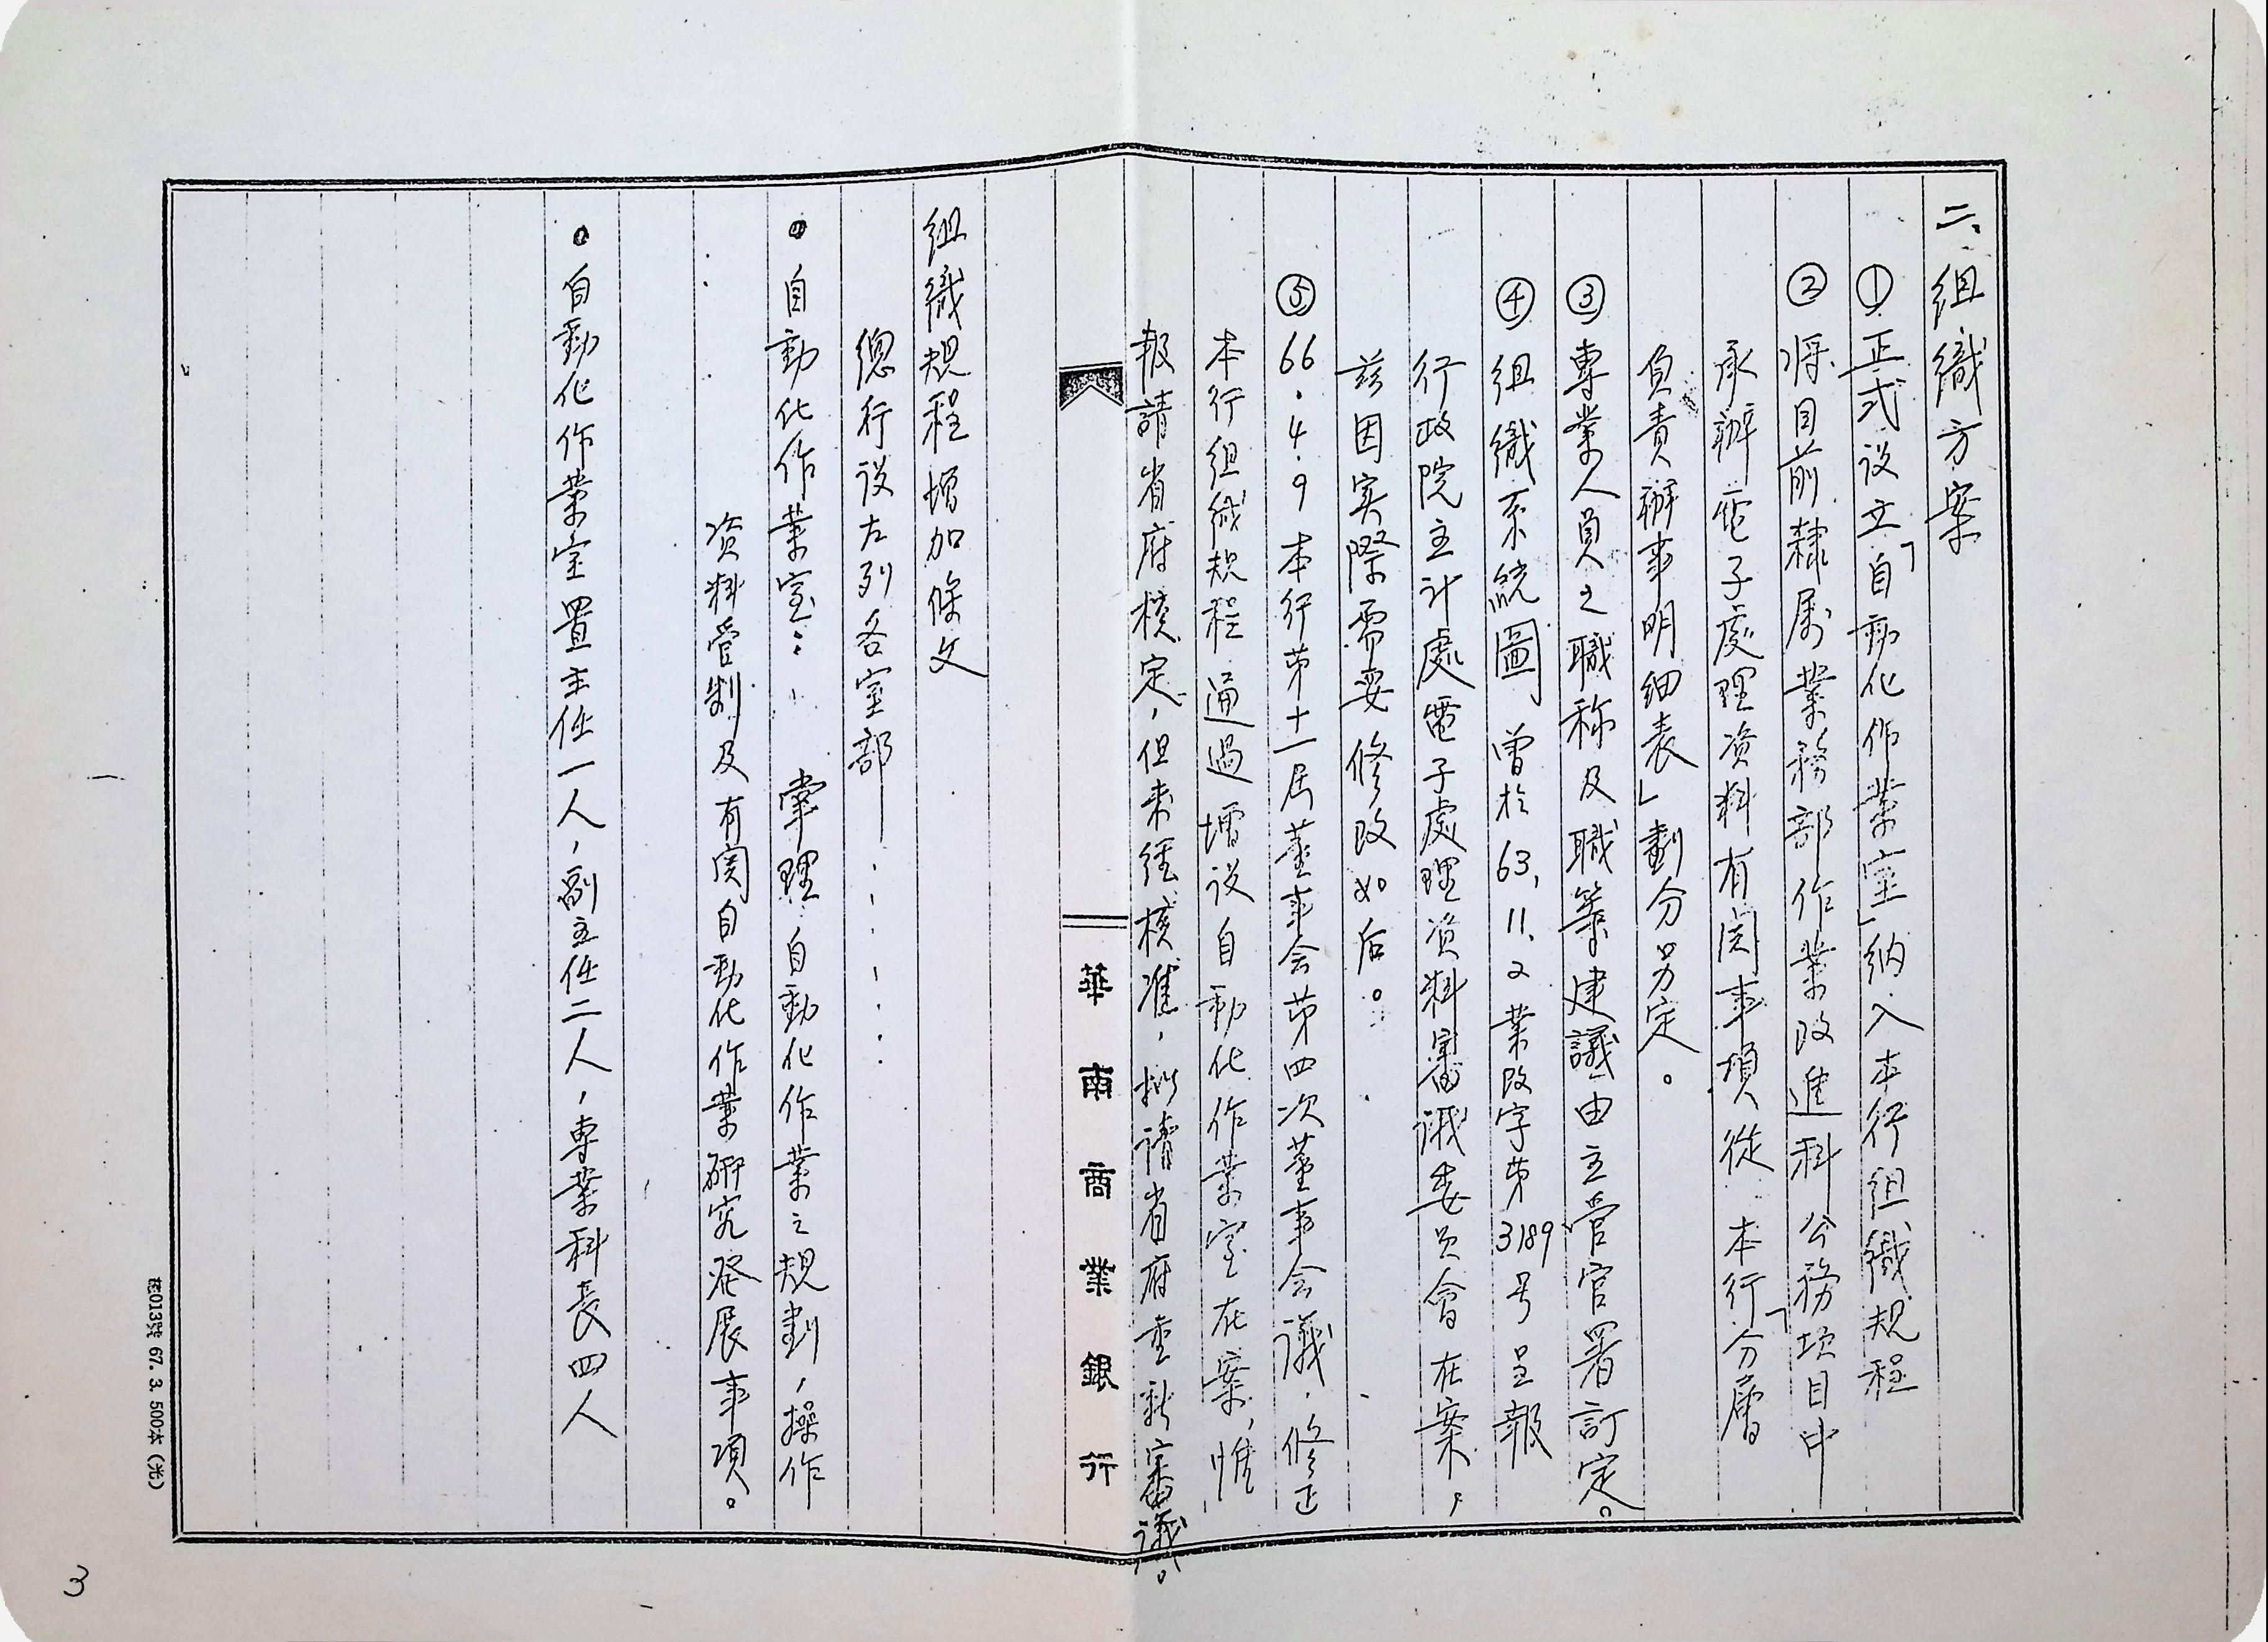 二、組織方案
①正式设立「自動化作業室」納入本行組織規程
②将目前隸属業務部作業改進科公務項目中
承辦電子處理資料有関事項從本行「分層
負責辦事明細表」劃分另定。
③專業人員之職称及職等建議由主管官署訂定。
④組織系統圖曾於63.11.2業改字第3189号呈報
行政院主计處電子處理資料審议委员會在案，
茲因实際需要修改如后。
⑤66.4.9本行第十一届董事会第四次董事会議，修正
本行組織規程通過增设自動化作業室在案，惟
報請省府核定，但未经核准，拟請省府重新審議。
華南商業銀行
組織規程增加條文
總行设左列各室部……
●自動化作業室：掌理自動化作業之規劃，操作
资料管制及有関自動化作業研究発展事項。
●自動化作業室置主任一人，副主任二人，專業科長四人
013號 67. 3. 500本（光）
3